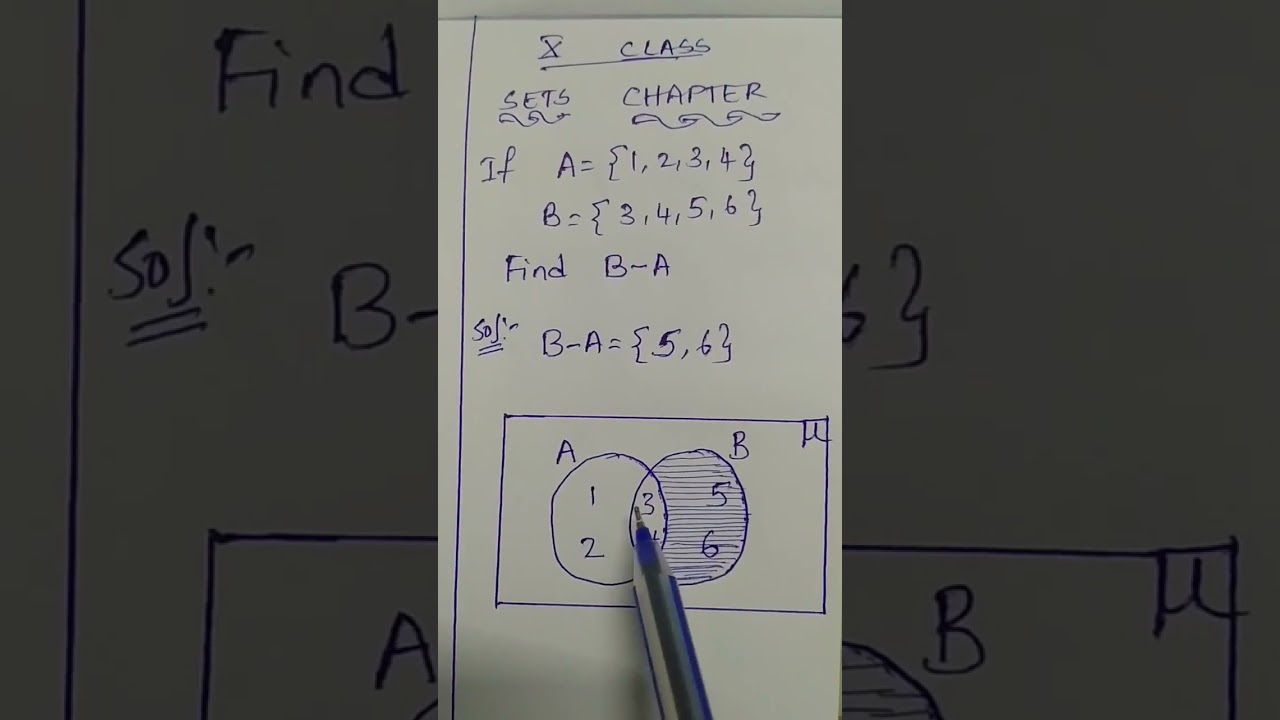 X CLASS
SETS CHAPTER
If A = {1, 2, 3, 4}
B = {3, 4, 5, 6}
Find B-A
Sol:- B-A = {5, 6}
A B μ
1 3 5
2 4 6
Find
Sol:- B-
6}
A B μ